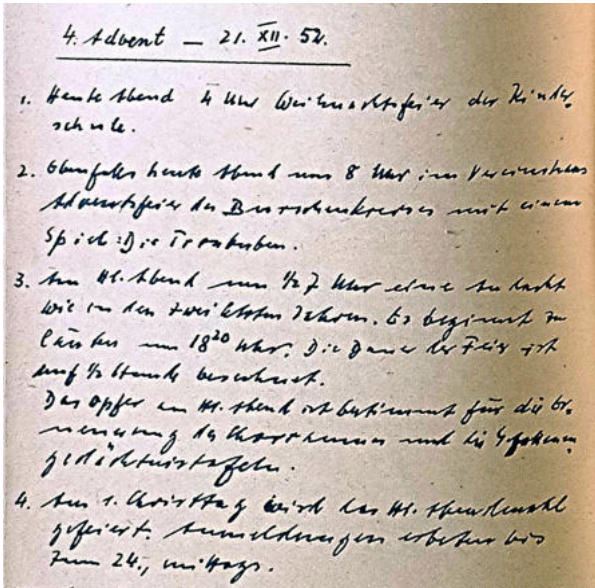 4. Advent — 21. XII. 52.
1. Heute Abend 4 Uhr Weihnachtsfeier der Kinder-
schule.
2. Ebenfalls heute Abend um 8 Uhr im Vereinshaus
Adventsfeier des Burschenkreises mit einem
Spiel: Die
3. Am Hl. Abend um ½ 7 Uhr eine Andacht
wie in den zwei letzten Jahren. Es beginnt zu
läuten um 18 20 Uhr. Die Dauer der Feier ist
auf ½ Stunde berechnet.
Das Opfer am Hl. Abend ist bestimmt für die Er-
neuerung des Chorraumes und die Gefallenen
gedächtnistafeln.
4. Am 1. Christtag wird das Hl. Abendmahl
gefeiert. Anmeldungen erbeten bis
zum 24., mittags.